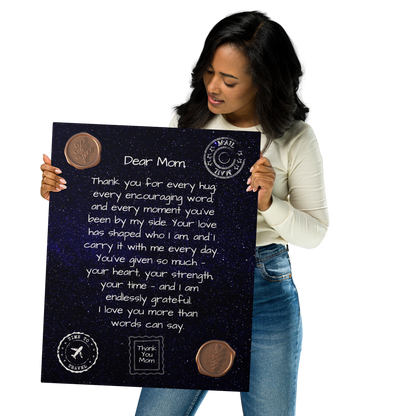 MAIL
MAIL
Dear Mom,
Thank you for every hug,
every encouraging word,
and every moment you've
been by my side. Your love
has shaped who I am, and I
carry it with me every day.
You've given so much -
your heart, your strength,
your time - and I am
endlessly grateful.
I love you more than
words can say.
TIME TO
TRAVEL
Thank
You
Mom